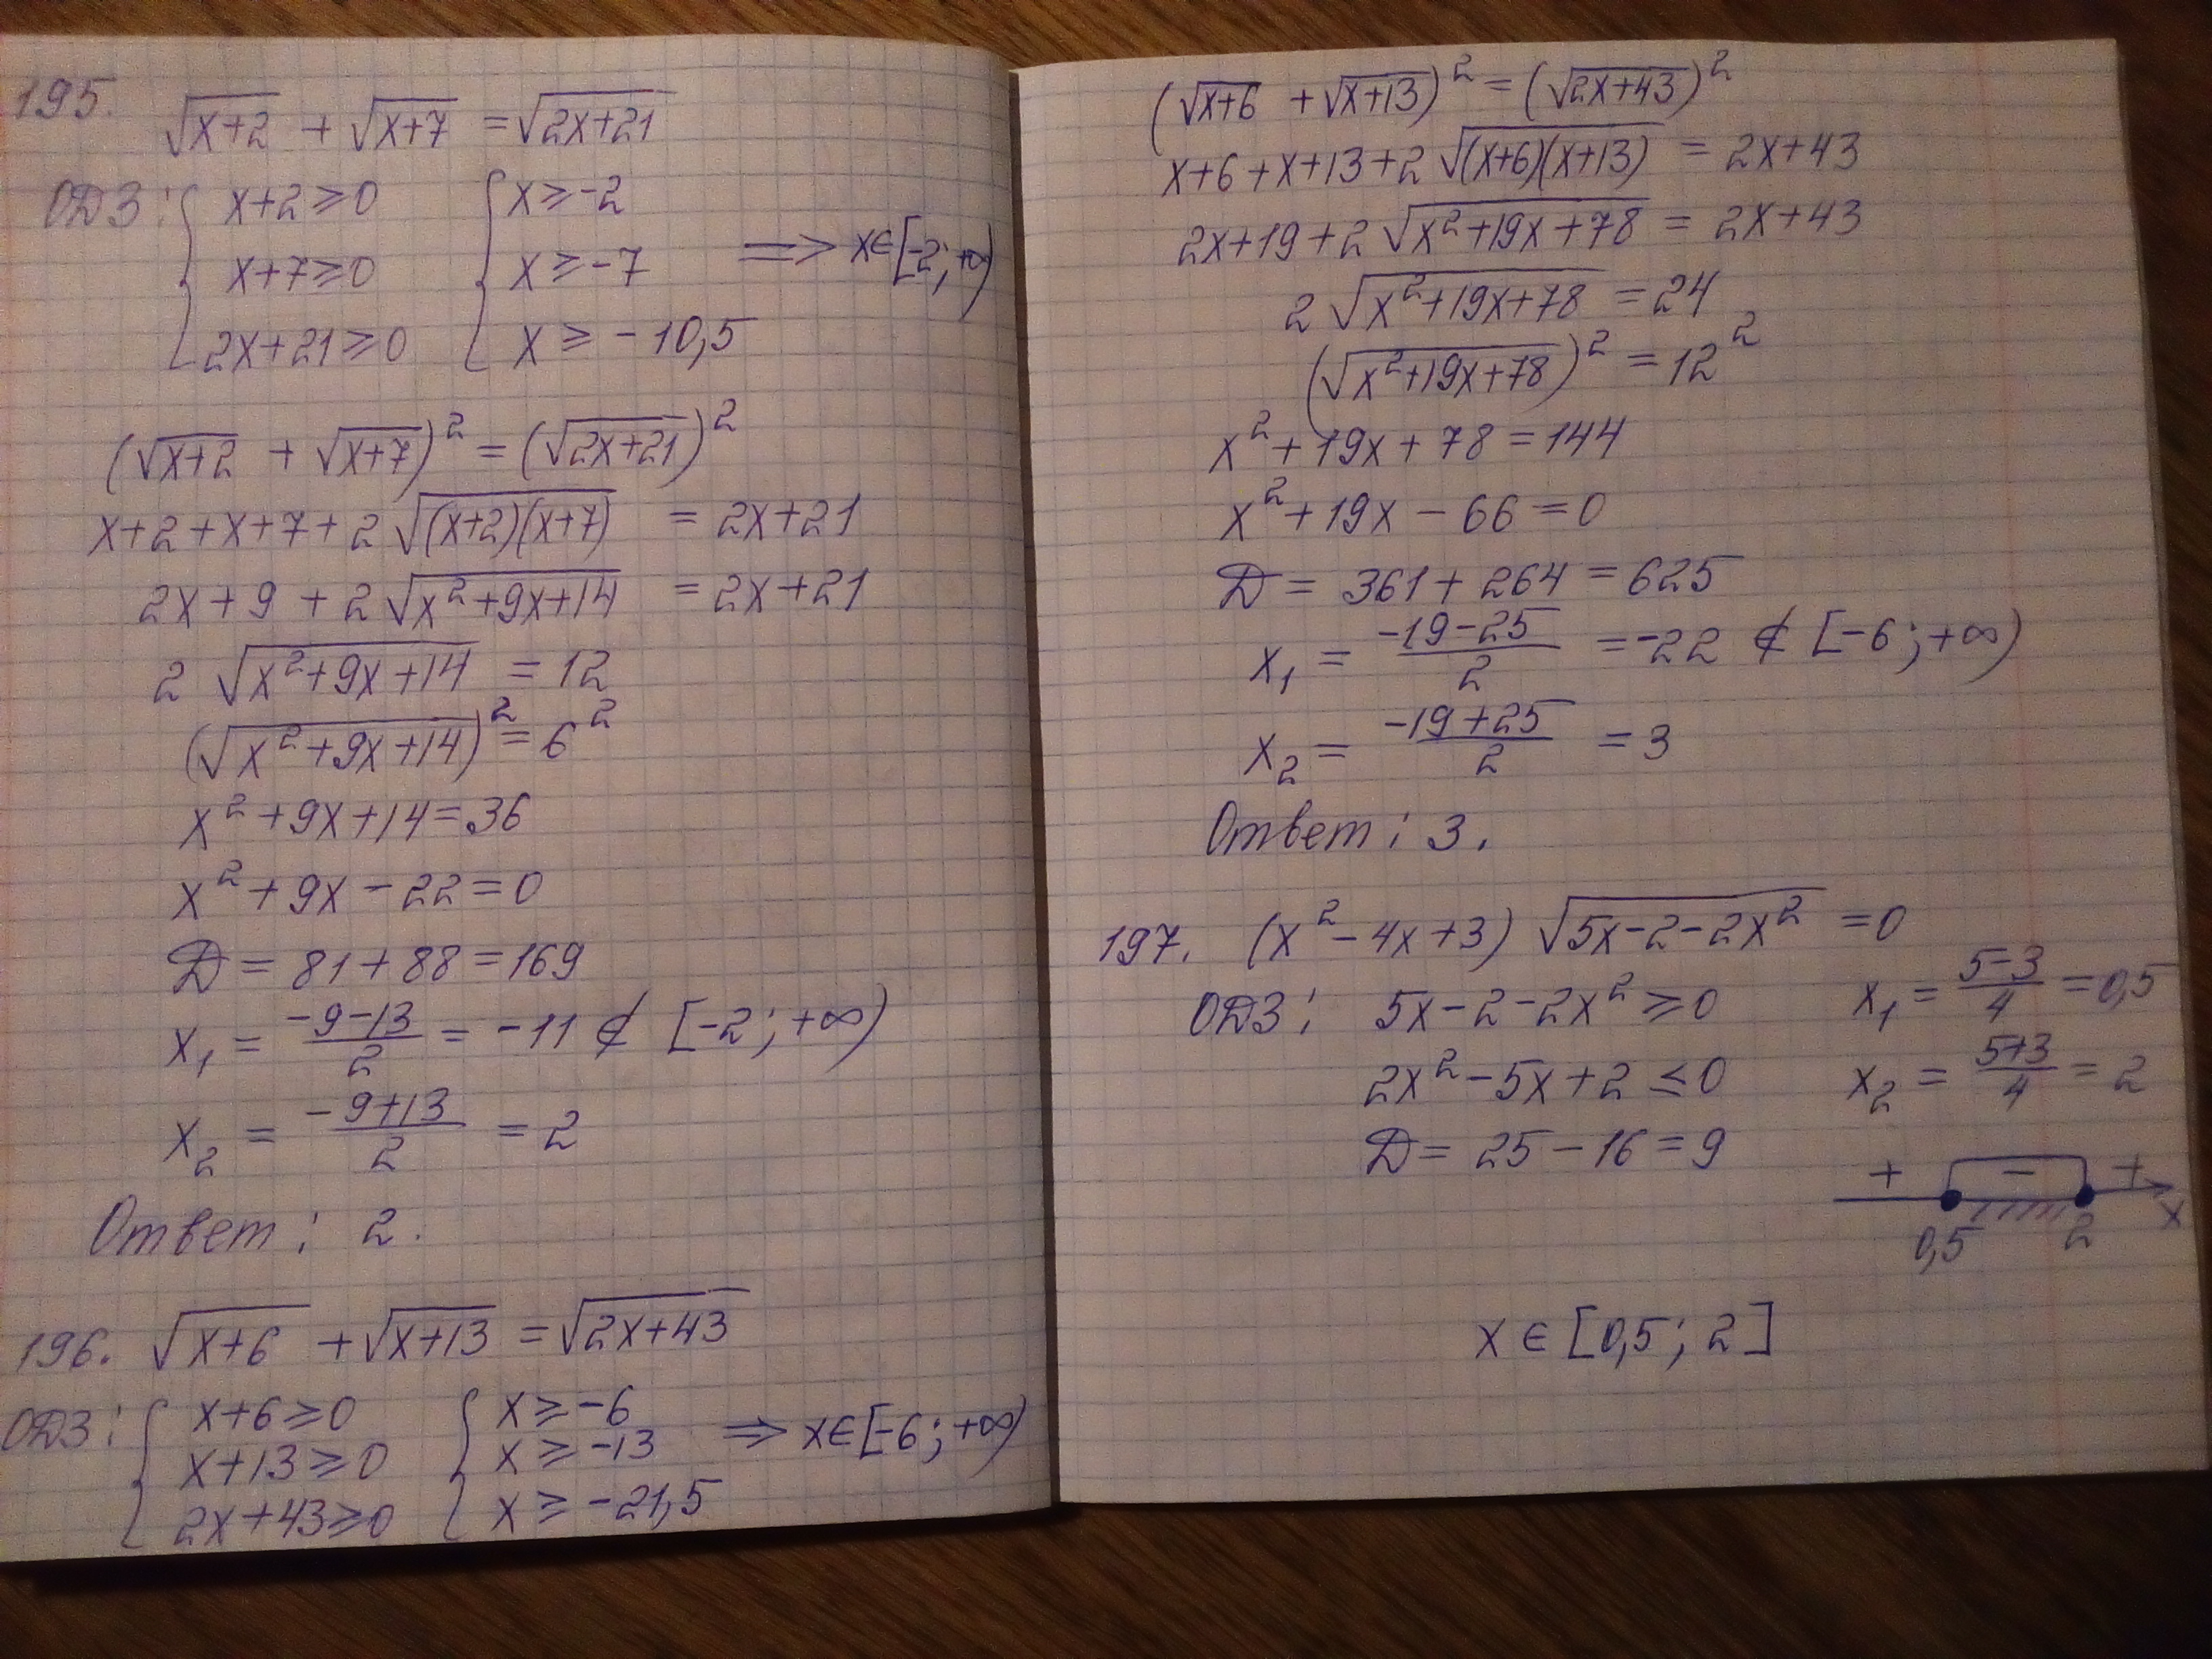 195.
√(x+2) + √(x+7) = √(2x+21)
ОДЗ: { x+2≥0 { x≥-2
x+7≥0 x≥-7 => x∈[-2;+∞)
2x+21≥0 x≥-10,5
(√(x+2) + √(x+7))² = (√(2x+21))²
x+2+x+7+2√((x+2)(x+7)) = 2x+21
2x+9+2√(x²+9x+14) = 2x+21
2√(x²+9x+14) = 12
(√(x²+9x+14))² = 6²
x²+9x+14=36
x²+9x-22=0
D=81+88=169
x₁ = (-9-13)/2 = -11 ⊄ [-2;+∞)
x₂ = (-9+13)/2 = 2
Ответ: 2.
196. √(x+6) + √(x+13) = √(2x+43)
ОДЗ: { x+6≥0 { x≥-6
x+13≥0 x≥-13 => x∈[-6;+∞)
2x+43≥0 x≥-21,5
(√(x+6) + √(x+13))² = (√(2x+43))²
x+6+x+13+2√((x+6)(x+13)) = 2x+43
2x+19+2√(x²+19x+78) = 2x+43
2√(x²+19x+78) = 24
(√(x²+19x+78))² = 12²
x²+19x+78=144
x²+19x-66=0
D = 361+264=625
x₁ = (-19-25)/2 = -22 ⊄ [-6;+∞)
x₂ = (-19+25)/2 = 3
Ответ: 3.
197. (x²-4x+3) √(5x-2-2x²) = 0
ОДЗ: 5x-2-2x²≥0
2x²-5x+2≤0
D=25-16=9
x₁ = (5-3)/4 = 0,5
x₂ = (5+3)/4 = 2
+ - +
0,5 2 x
x∈[0,5;2]